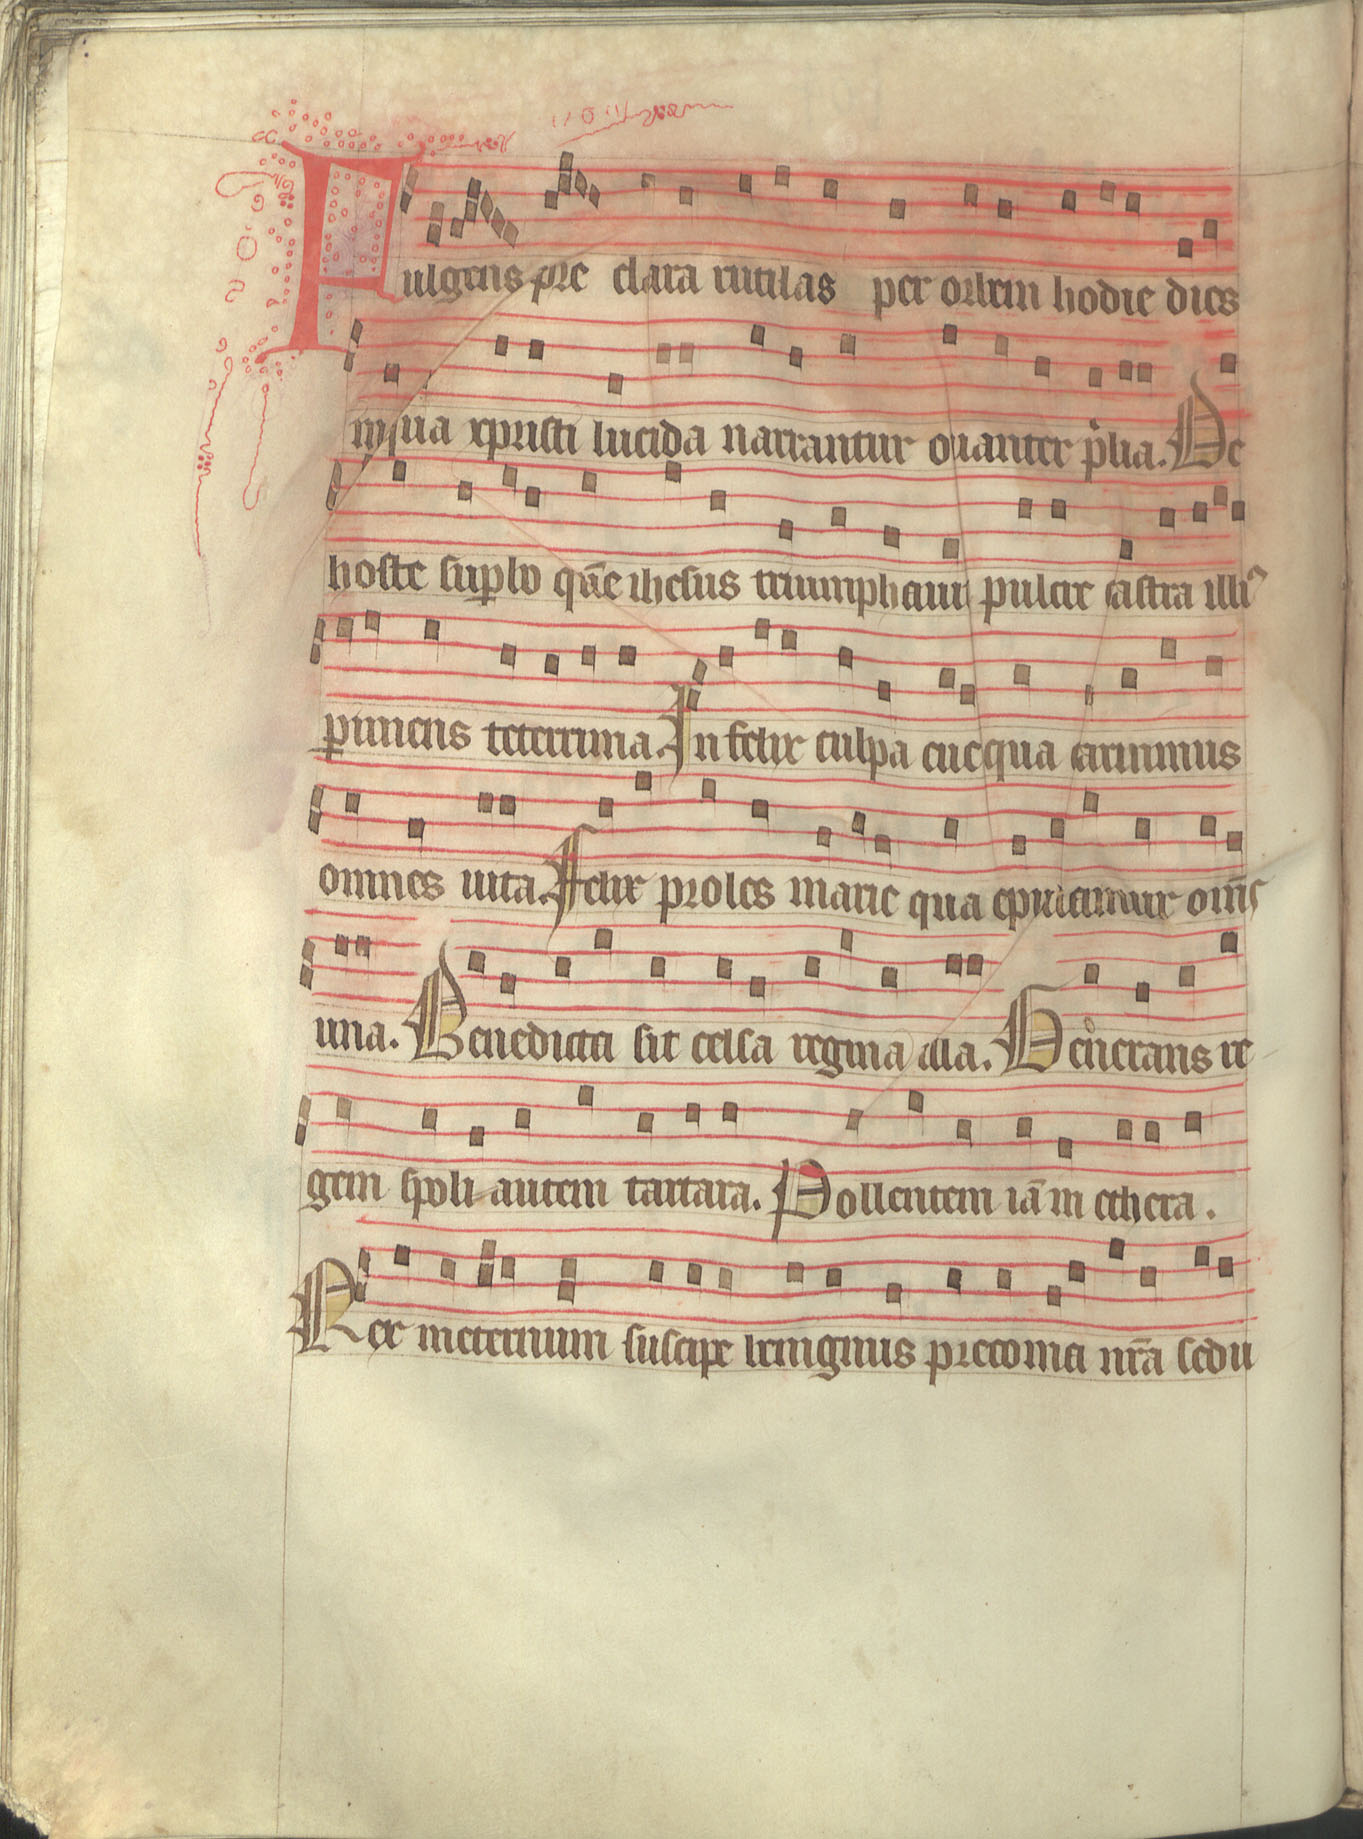 Fulgens pre clara rutilas per orbem hodie dies
in qua xpristi lucida narrantur ouanter p̄lia. De
hoste suꝑbo quē ihesus triumphauit pulcre castra illiꝰ
ꝑimens teterrima. Infelix culpa eue qua caruimus
omnes uita. Felix proles marie qua epulamur om̄s
una. Benedicta sit celsa regina illa. Generans re
gem spoliantem tartara. Pollentem iā in ethera.
Rex in eternum suscipe benignus preconia nr̄a sedu